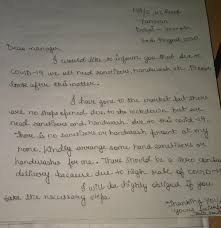 Dear manager,
I would like to inform you that due to
COVID-19 we all need sanitizers, handwash etc. Please
look after this matter.
I have gone to the market but there
are no shops opened due to the lockdown but are
need sanitizers and handwash due to the covid-19.
There is no sanitizers or handwash present at my
home. Kindly arrange some hand sanitizers or
handwashes for me. There should be a zero contact
delivery because due to high rate of COVID-19
I will be highly obliged if you
take the necessary steps.
Thanking you
Yours